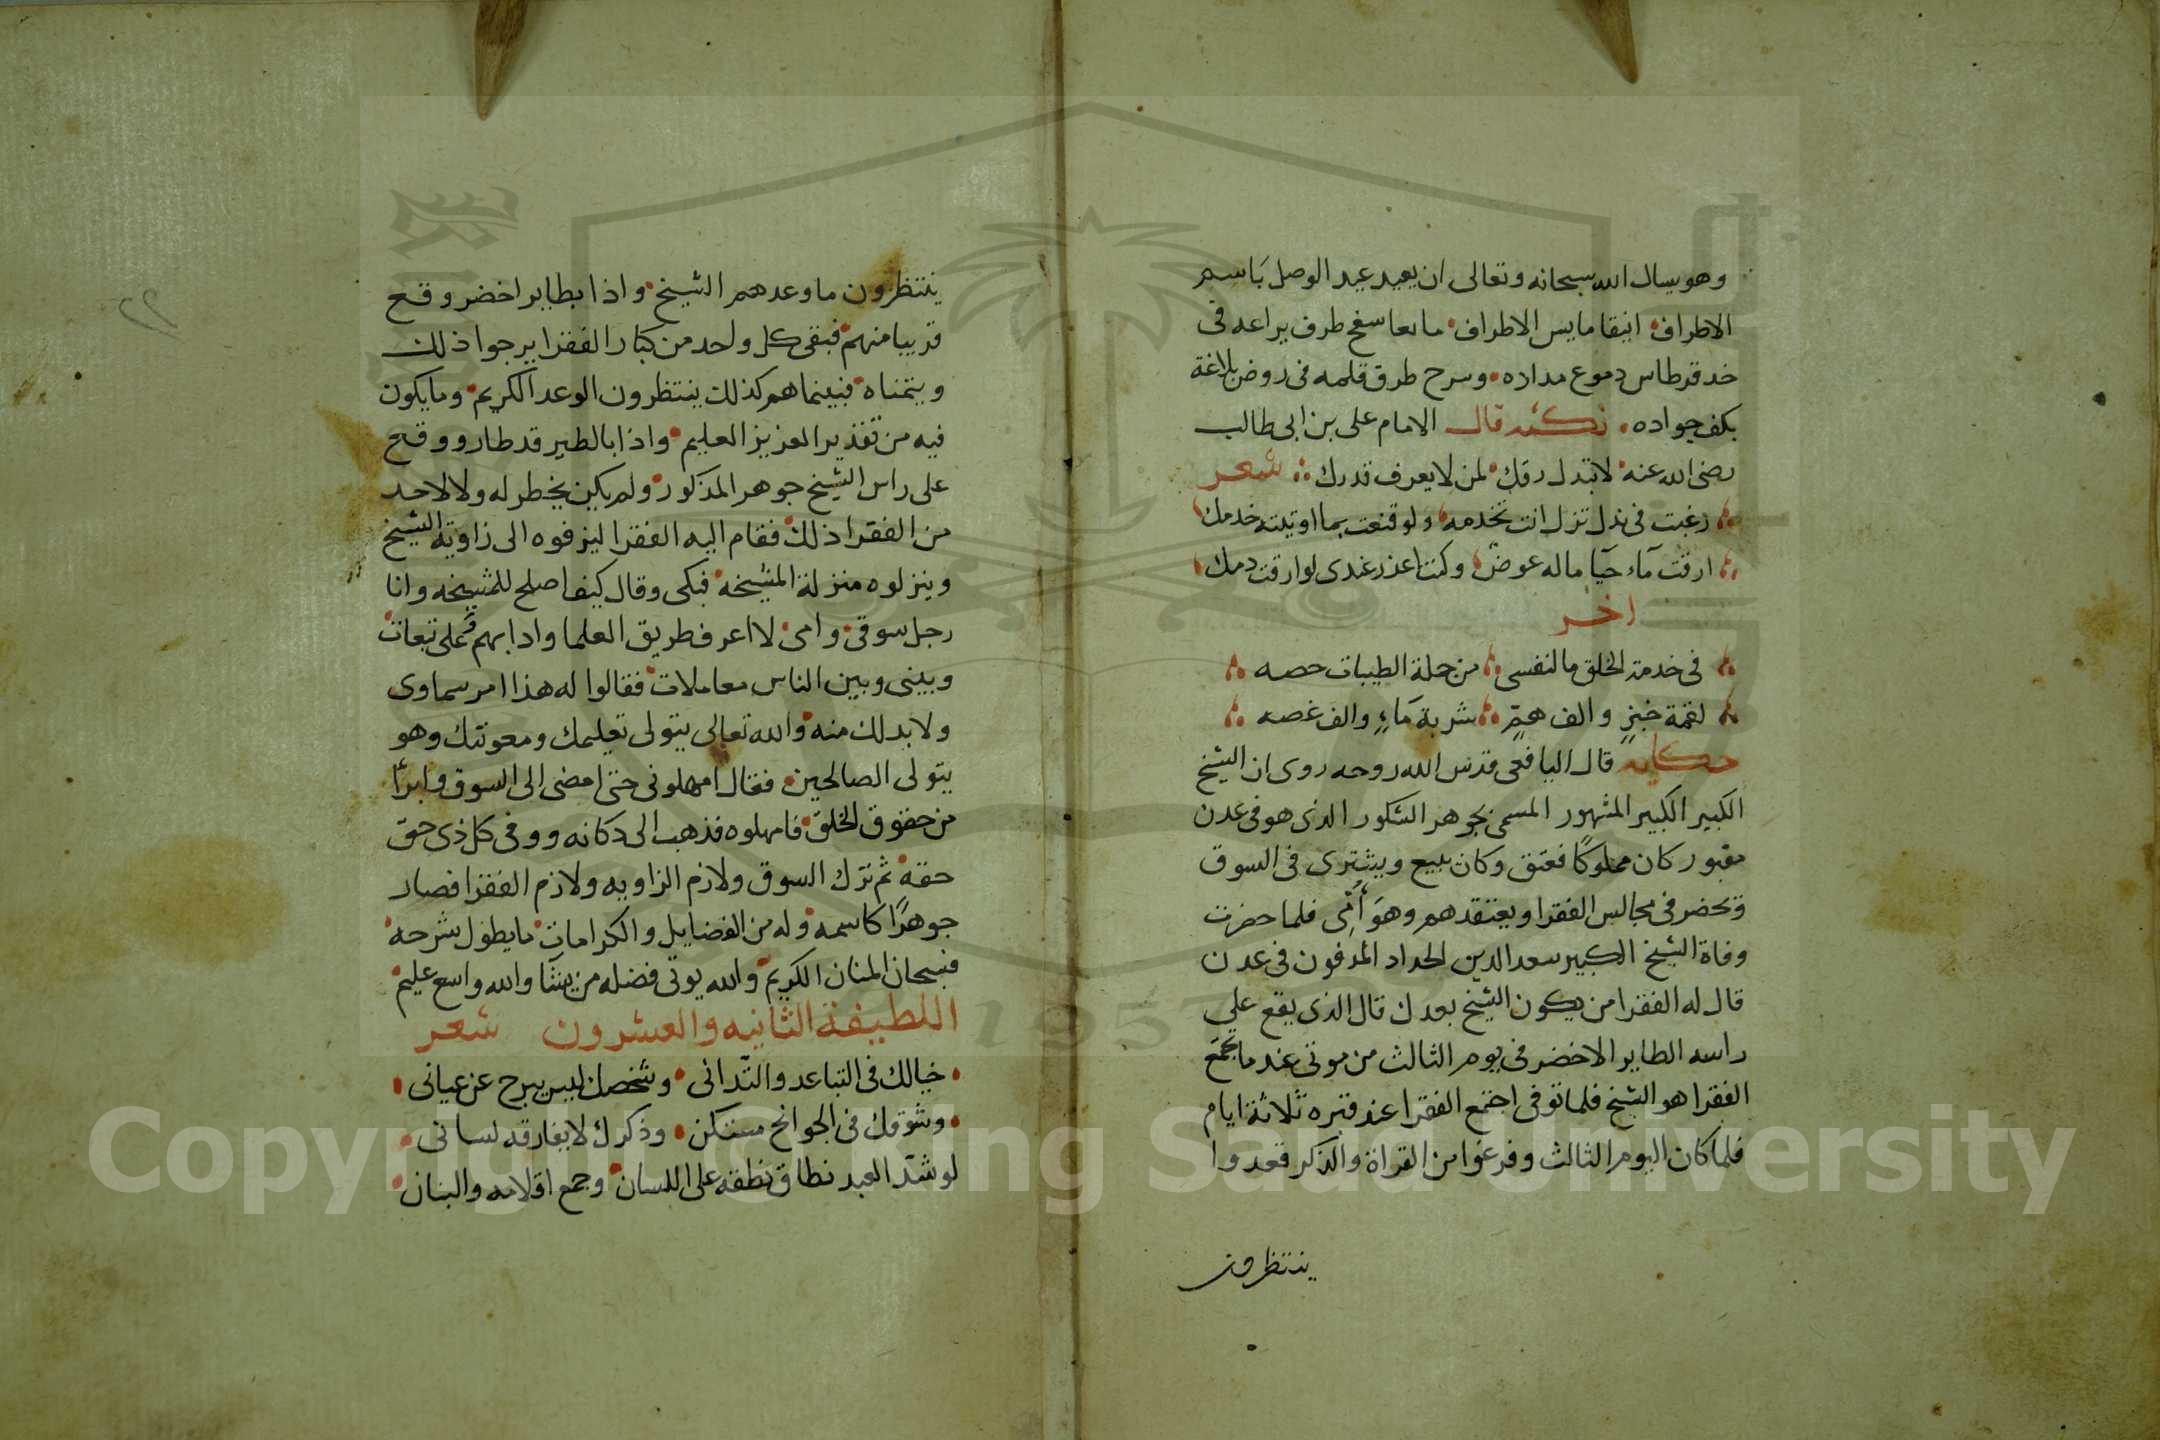 وهو يسال الله سبحانه وتعالى ان يعيد عيد الوصل باسم
الاطراف انيقا مايس الاطراف ما سفح طرف يراعه فى
خد قرطاس دموع مداده وسرح طرف قلمه فى روض بلاغة
بكف جواده نكته قال الامام على بن ابى طالب
رضى الله عنه لا تبدل رقك لمن لا يعرف قدرك شعر
رغبت فى نذل تزل انت تخدمه ولو قنعت بما اوتيته خدمك
ارقت مآء حيا ماله عوض وكنت اعذر عندى لو ارقت دمك
اخر
فى خدمة الخلق ما لنفسى من جملة الطيبات حصه
لقمة خبزٍ والف همٍّ شربة مآءٍ والف غصه
حكايه قال اليافعى قدس الله روحه روى ان الشيخ
الكبير الكبير المشهور المسمى بجوهر الشكور الذى هو فى عدن
مقبور كان مملوكًا فعتق وكان يبيع ويشترى فى السوق
ويحضر فى مجالس الفقرا ويعتقدهم وهو أُمِّى فلما حضرت
وفاة الشيخ الكبير سعد الدين الحداد المدفون فى عدن
قال له الفقرا من يكون الشيخ بعدك قال الذى يقع على
راسه الطاير الاخضر فى يوم الثالث من موتى عند ما تجمع
الفقرا هو الشيخ فلما توفى اجتمع الفقرا عند قبره ثلاثة ايام
فلما كان اليوم الثالث وفرغوا من القراة والذكر قعدوا
ينتظرون
ينتظرون ما وعدهم الشيخ واذا بطاير اخضر وقع
قريبا منهم فبقى كل واحد من كبار الفقرا يرجوا ذلك
ويتمناه فبينما هم كذلك ينتظرون الوعد الكريم وما يكون
فيه من تقدير العزيز العليم واذا بالطير قد طار ووقع
على راس الشيخ جوهر المذكور ولم يكن يخطر له ولا لاحد
من الفقرا ذلك فقام اليه الفقرا ليزفوه الى زاوية الشيخ
وينزلوه منزلة المشيخة فبكى وقال كيف اصلح للمشيخه وانا
رجل سوقى وامى لا اعرف طريق العلما وادابهم وعلى تبعات
وبينى وبين الناس معاملات فقالوا له هذا امر سماوى
ولا بد لك منه والله تعالى يتولى تعليمك ومعونتك وهو
يتولى الصالحين فقال امهلونى حتى امضى الى السوق وابرأ
من حقوق الخلق فامهلوه فذهب الى دكانه ووفى كل ذى حق
حقه ثم ترك السوق ولازم الزاويه ولازم الفقرا فصار
جوهرًا كاسمه وله من الفضايل والكرامات ما يطول شرحه
فسبحان المنان الكريم والله يوتى فضله من يشآ والله واسع عليم
اللطيفة الثانيه والعشرون شعر
خيالك فى التباعد والتدانى وشخصك ليس يبرح عن عيانى
وشوقك فى الجوانح مستكن وذكرك لا يفارقه لسانى
لو شد العبد نطاق نطقه على اللسان وجمع اقلامه والبنان
Copyright © King Saud University
1957